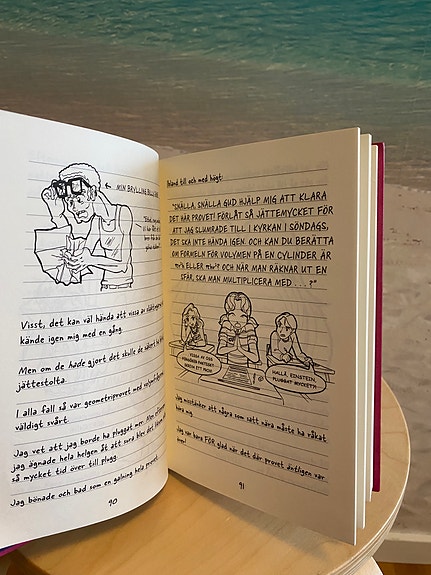 MIN BRYLLING BILL
Visst, det kan väl hända att vissa av
kände igen mig med en gång.
Men om de hade gjort det skulle de säkert
jättestolta.
I alla fall så var geometriprovet med
väldigt svårt.
Jag vet att jag borde ha pluggat mer. Men
jag ägnade hela helgen åt att sura blev det
så mycket tid över till plugg.
Jag bönade och bad som en galning hela provet.
90
Ibland till och med högt:
"SNÄLLA, SNÄLLA GUD HJÄLP MIG ATT KLARA
DET HÄR PROVET! FÖRLÅT SÅ JÄTTEMYCKET FÖR
ATT JAG SLUMRADE TILL I KYRKAN I SÖNDAGS,
DET SKA INTE HÄNDA IGEN. OCH KAN DU BERÄTTA
OM FORMELN FÖR VOLYMEN PÅ EN CYLINDER ÄR
ELLER OCH NÄR MAN RÄKNAR UT EN
SFÄR, SKA MAN MULTIPLICERA MED . . . ?"
VISSA AV OSS
FÖRSÖKER FAKTISKT
SKRIVA ETT PROV!
HALLÅ, EINSTEIN,
PLUGGAT MYCKET?!
Jag misstänker att några som satt nära måste ha råkat
höra mig.
Jag var bara FÖR glad när det där provet äntligen var
över!
91